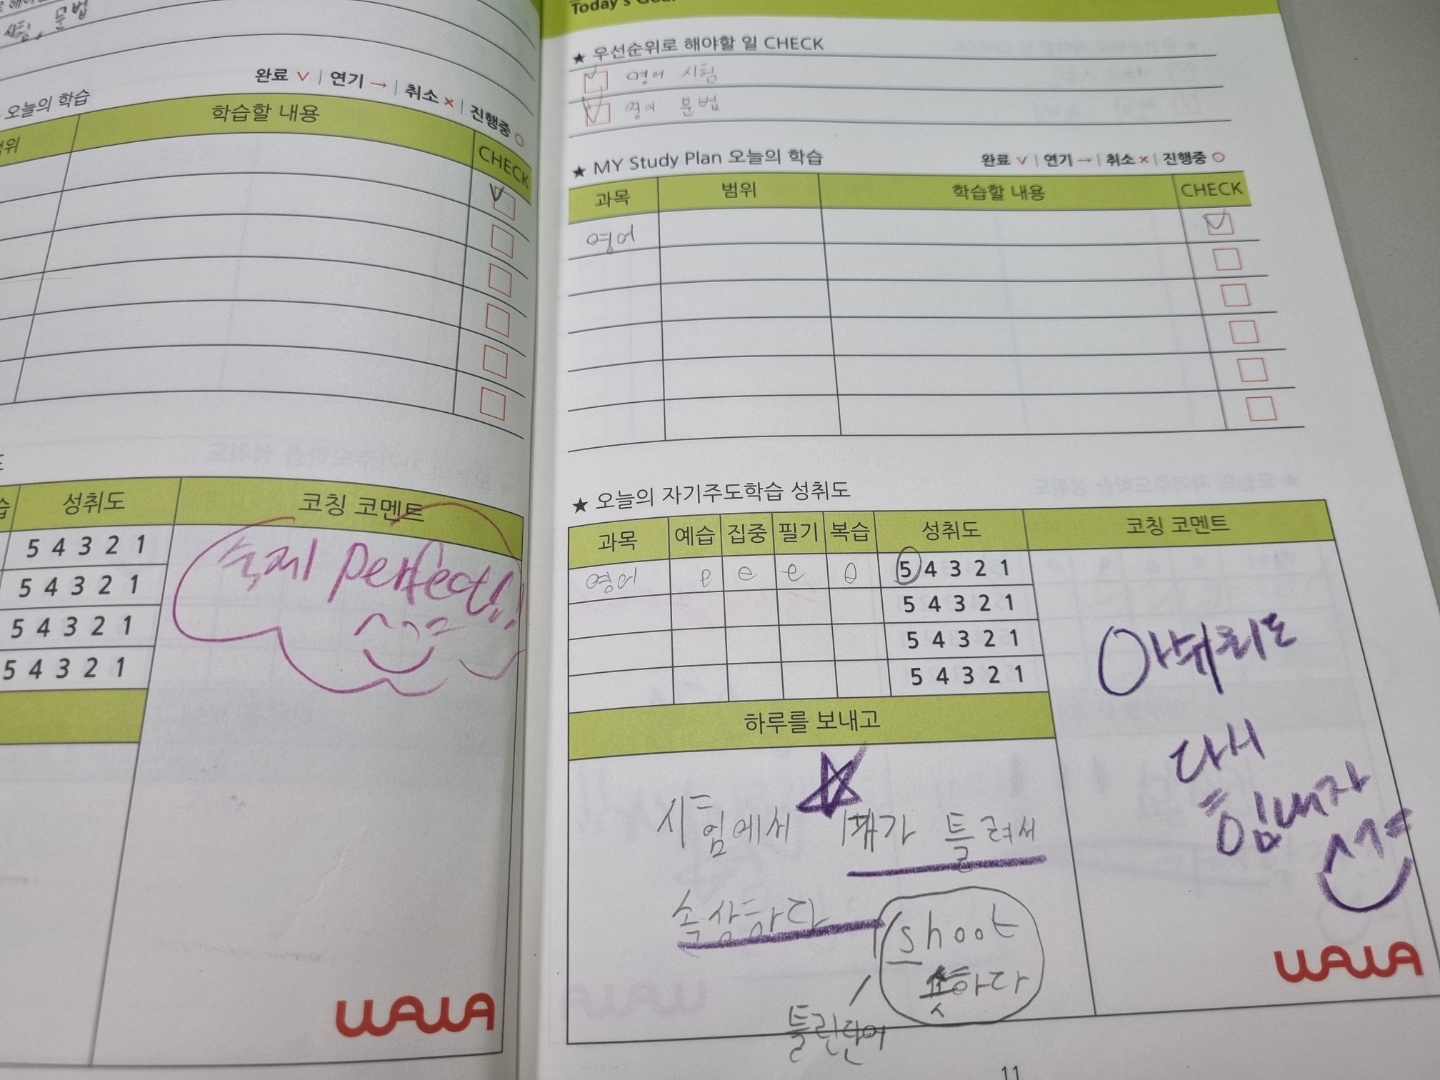 시험, 문법
완료 ∨ | 연기 → | 취소 × | 진행중 ○
오늘의 학습
학습할 내용
CHECK
성취도
코칭 코멘트
5 4 3 2 1
5 4 3 2 1
5 4 3 2 1
5 4 3 2 1
숙제 perfect!!
WAWA
Today's
★ 우선순위로 해야할 일 CHECK
영어 시험
영어 문법
★ MY Study Plan 오늘의 학습
완료 ∨ | 연기 → | 취소 × | 진행중 ○
과목 범위 학습할 내용 CHECK
영어
★ 오늘의 자기주도학습 성취도
과목 예습 집중 필기 복습 성취도 코칭 코멘트
영어 5 4 3 2 1
5 4 3 2 1
5 4 3 2 1
5 4 3 2 1
하루를 보내고
시험에서 1개가 틀려서
속상하다
shoot
쏘다
틀린단어
아쉬워도
다시
힘내자
WAWA
11